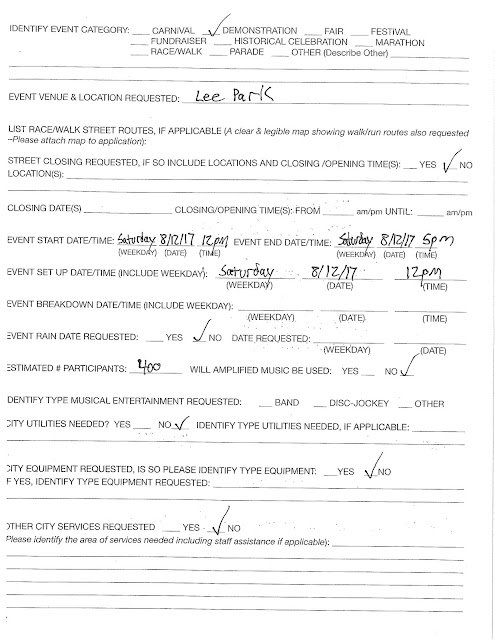 IDENTIFY EVENT CATEGORY: ___ CARNIVAL ✓ DEMONSTRATION ___ FAIR ___ FESTIVAL
___ FUNDRAISER ___ HISTORICAL CELEBRATION ___ MARATHON
___ RACE/WALK ___ PARADE ___ OTHER (Describe Other)
EVENT VENUE & LOCATION REQUESTED: Lee Park
LIST RACE/WALK STREET ROUTES, IF APPLICABLE (A clear & legible map showing walk/run routes also requested
–Please attach map to application):
STREET CLOSING REQUESTED, IF SO INCLUDE LOCATIONS AND CLOSING /OPENING TIME(S): ___ YES ✓ NO
LOCATION(S):
CLOSING DATE(S) ___ CLOSING/OPENING TIME(S): FROM ___ am/pm UNTIL: ___ am/pm
EVENT START DATE/TIME: Saturday 8/12/17 12pm EVENT END DATE/TIME: Saturday 8/12/17 5pm
(WEEKDAY) (DATE) (TIME) (WEEKDAY) (DATE) (TIME)
EVENT SET UP DATE/TIME (INCLUDE WEEKDAY): Saturday 8/12/17 12pm
(WEEKDAY) (DATE) (TIME)
EVENT BREAKDOWN DATE/TIME (INCLUDE WEEKDAY):
(WEEKDAY) (DATE) (TIME)
EVENT RAIN DATE REQUESTED: ___ YES ✓ NO DATE REQUESTED:
(WEEKDAY) (DATE)
ESTIMATED # PARTICIPANTS: 400 WILL AMPLIFIED MUSIC BE USED: YES ___ NO ✓
DENTIFY TYPE MUSICAL ENTERTAINMENT REQUESTED: ___ BAND ___ DISC-JOCKEY ___ OTHER
CITY UTILITIES NEEDED? YES ___ NO ✓ IDENTIFY TYPE UTILITIES NEEDED, IF APPLICABLE:
CITY EQUIPMENT REQUESTED, IS SO PLEASE IDENTIFY TYPE EQUIPMENT: ___ YES ✓ NO
F YES, IDENTIFY TYPE EQUIPMENT REQUESTED:
OTHER CITY SERVICES REQUESTED ___ YES ✓ NO
Please identify the area of services needed including staff assistance if applicable):